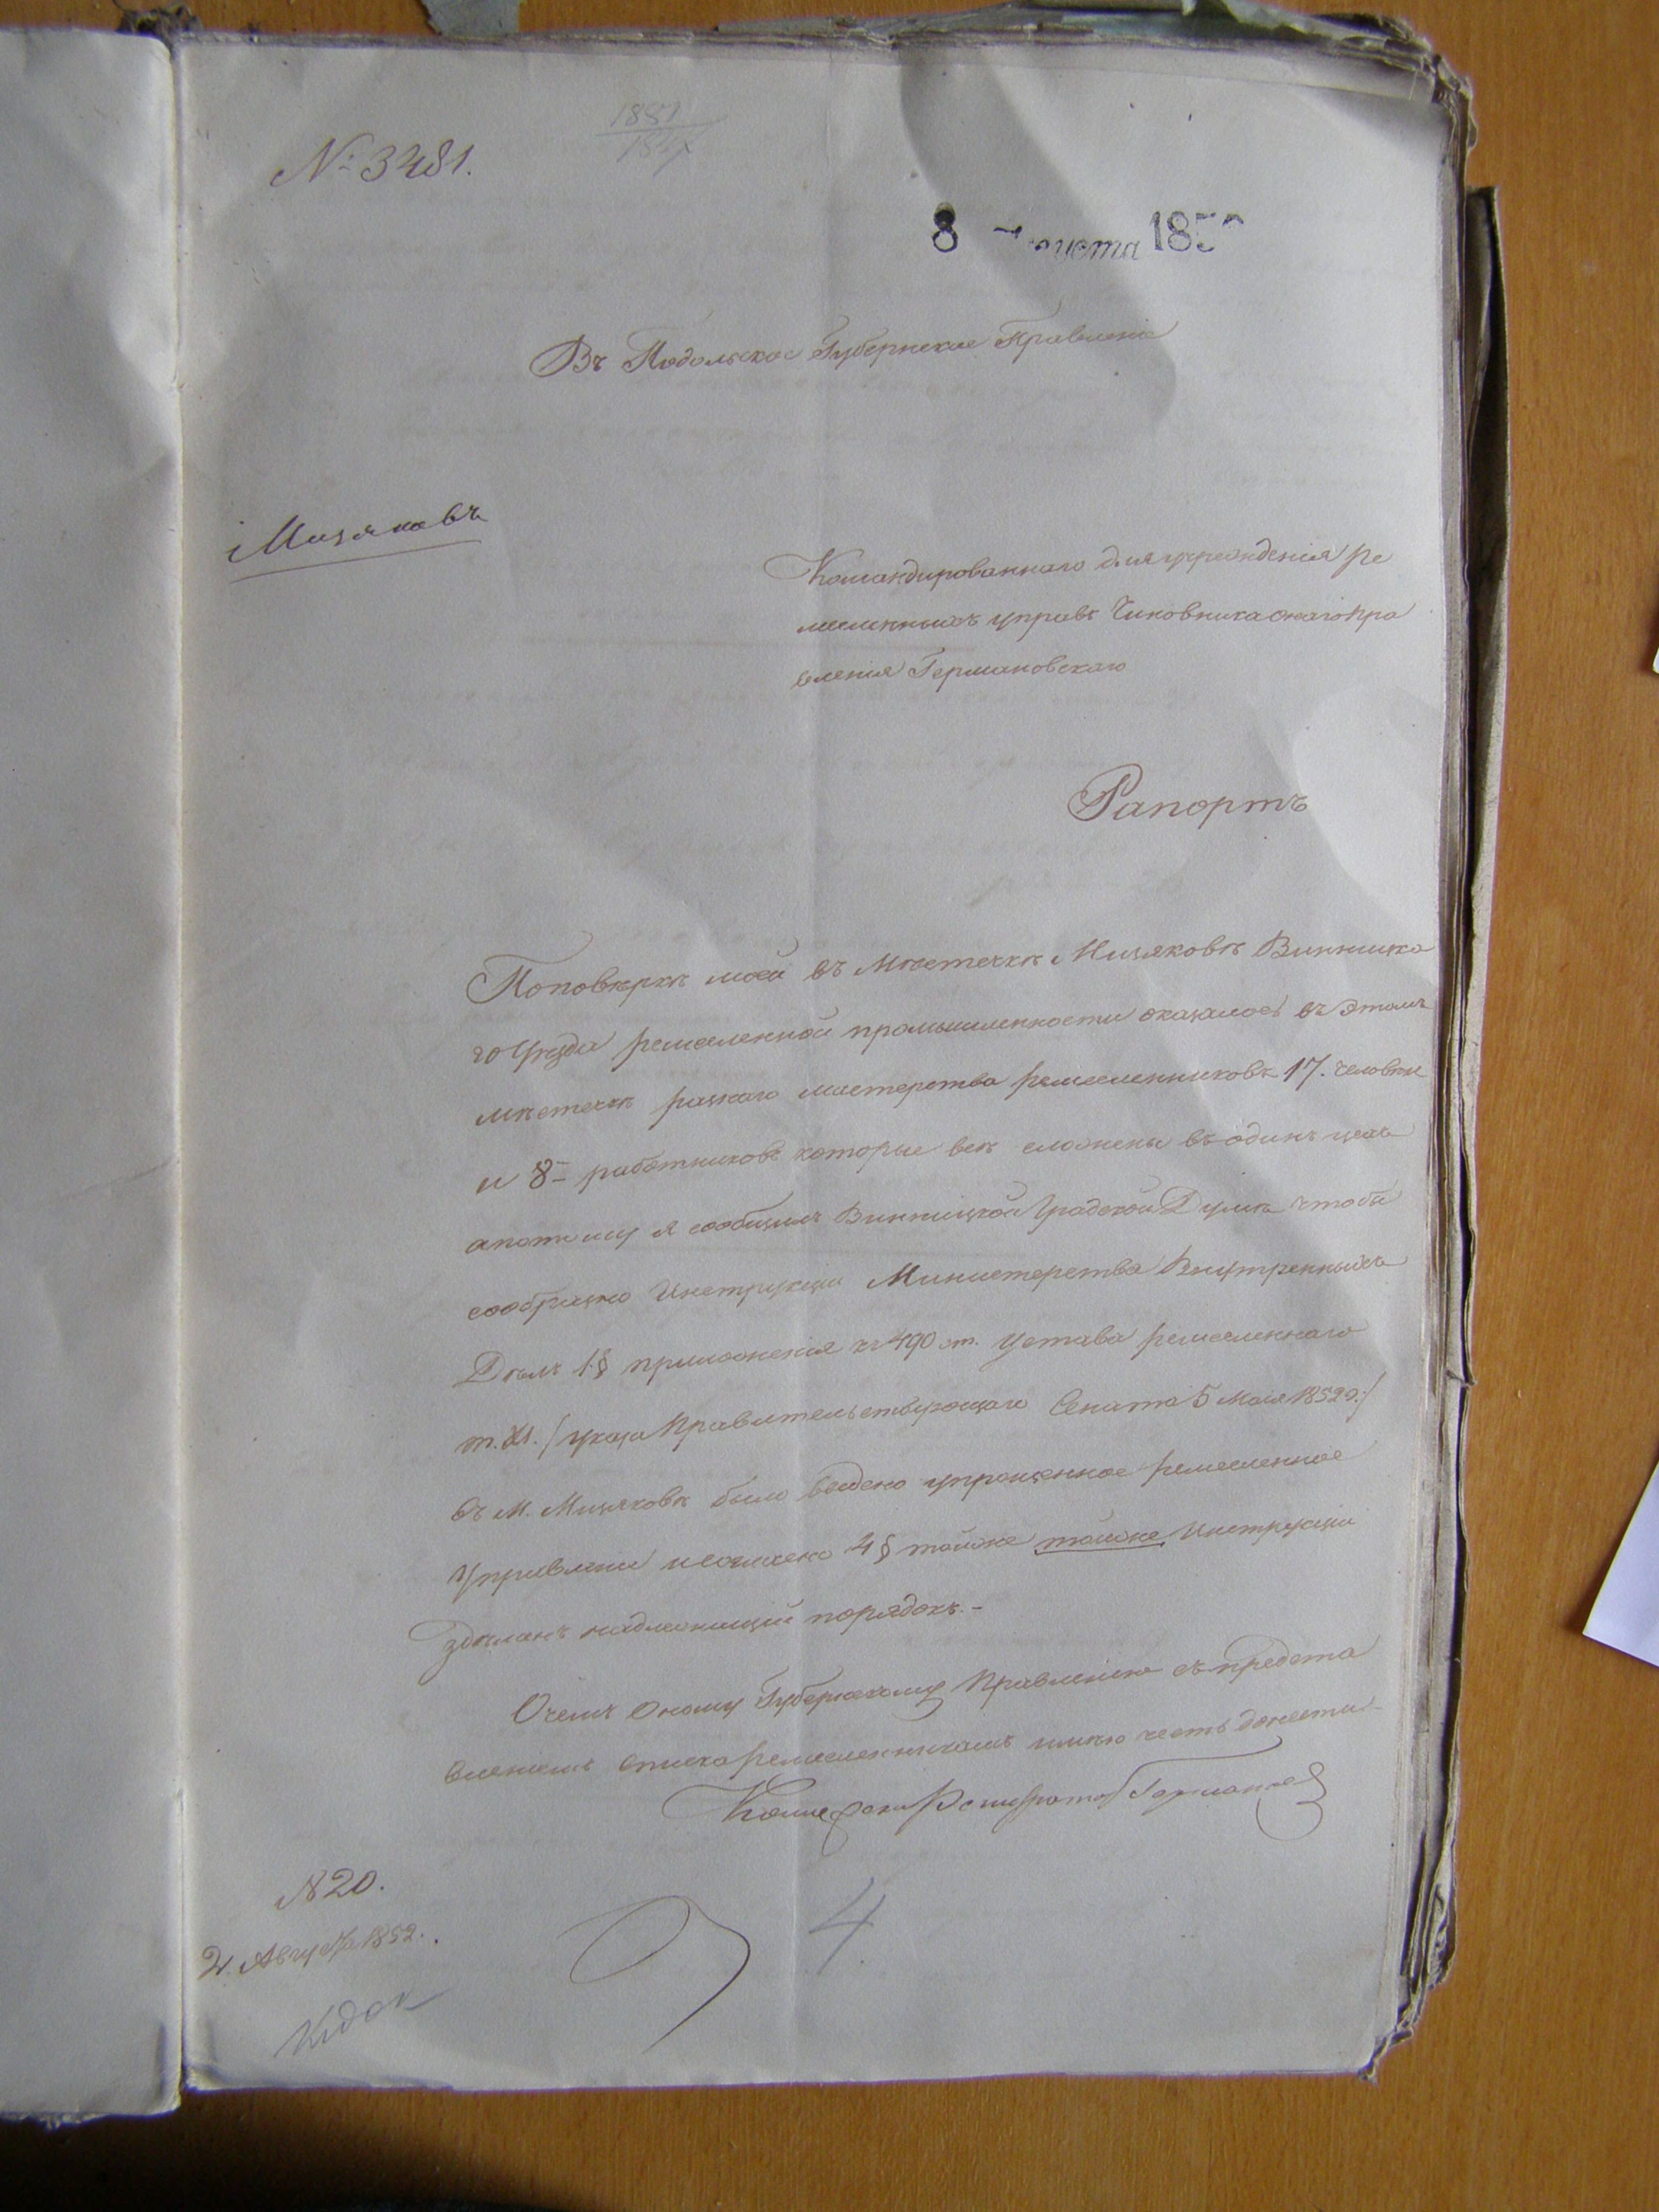 № 3481.
1851
8 Августа 185
Въ Подольское Губернское Правленіе
Мизяковъ
Командированнаго для учрежденія ре
месленныхъ управъ Чиновника онаго Пра
вленія Германовскаго
Рапортъ
По повѣркѣ моей въ Мѣстечкѣ Мизяковѣ Винницка
го Уѣзда ремесленной промышленности оказалось въ этомъ
мѣстечкѣ разнаго мастерства ремесленниковъ 17. человѣкъ
и 8 – работниковъ которые всѣ сложены въ одинъ цехъ
а потому я сообщилъ Винницкой Градской Думѣ чтобы
сообразно Инструкціи Министерства Внутренныхъ
Дѣлъ 1 § приложенія къ 490 ст. устава ремесленнаго
т. XI. /указа Правительствующаго Сената 5 Мая 1852 г./
въ М. Мизяковѣ было введено упрощенное ремесленное
Управленіе и согласно 4 § тойже тойже Инструкціи
здѣланъ надлежащій порядокъ. –
О чемъ Оному Губернскому Правленію съ предста
вленіемъ списка ремесленникамъ имѣю честь донести
№ 20.
2. Августа 1852.
4